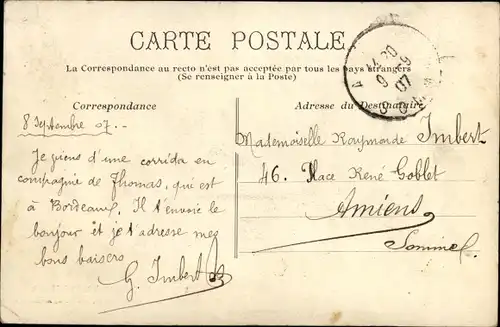 CARTE POSTALE
La Correspondance au recto n'est pas acceptée par tous les pays étrangers
(Se renseigner à la Poste)
Correspondance
Adresse du Destinataire
8 Septembre 07..
Je viens d'une corrida en
compagnie de Thomas, qui est
à Bordeaux. Il t'envoie le
bonjour et je t'adresse mes
bons baisers
G. Imbert
Mademoiselle Raymonde Imbert
46. Place René Goblet
Amiens
Somme.